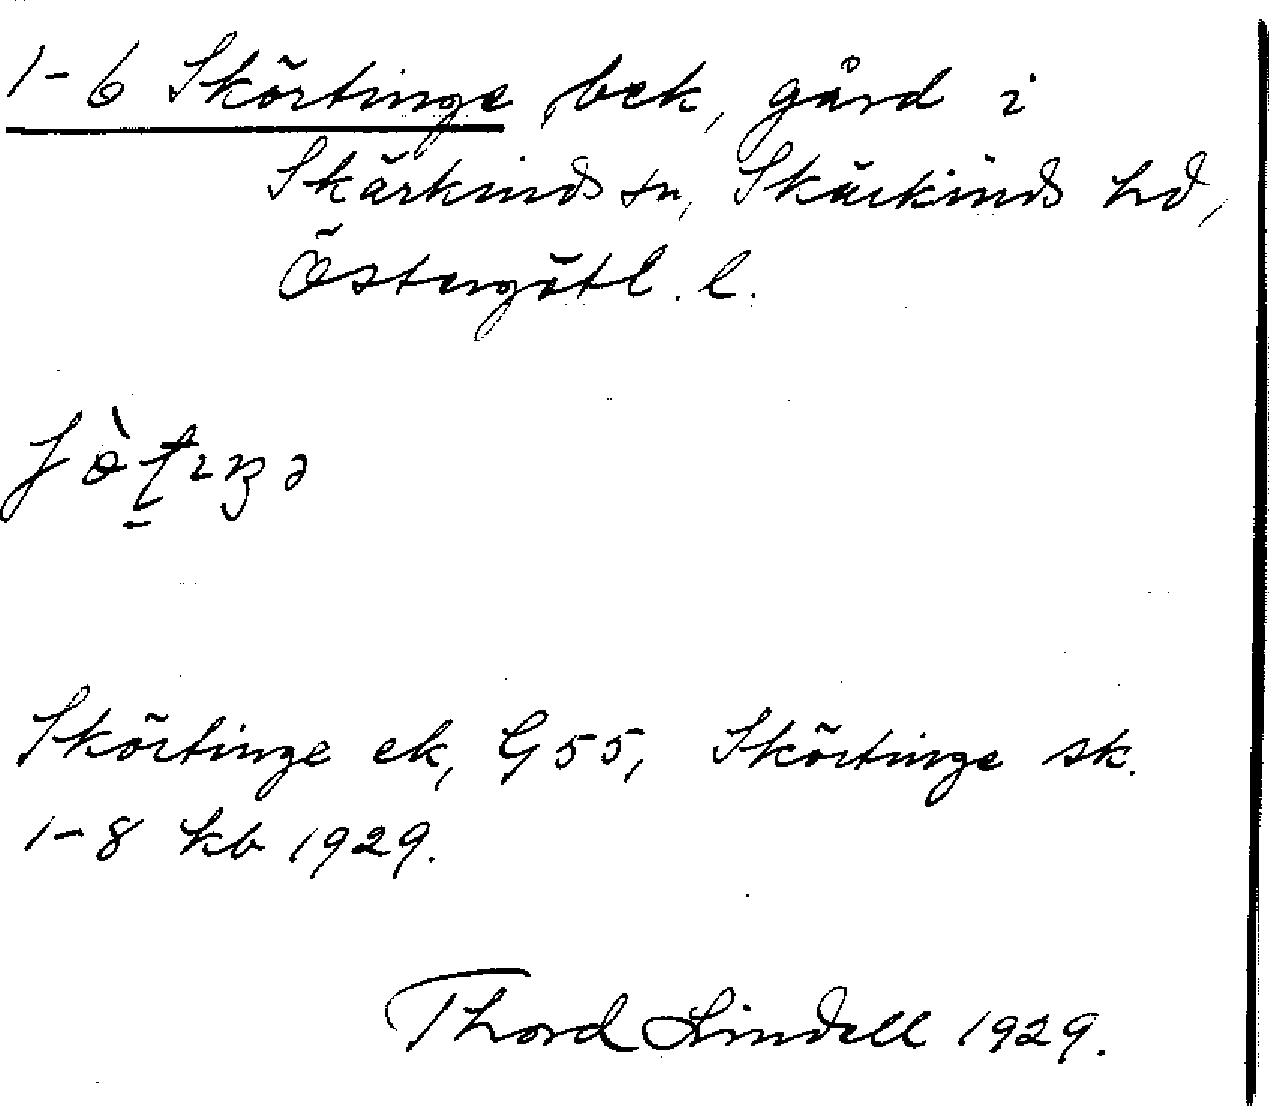 1-6 Skörtinge bek, gård i
Skärkinds sn, Skärkinds hd,
Östergötl. l.
Skörtinge ek, G55, Skörtinge sk.
1-8 kb 1929.
Thord Lindell 1929.